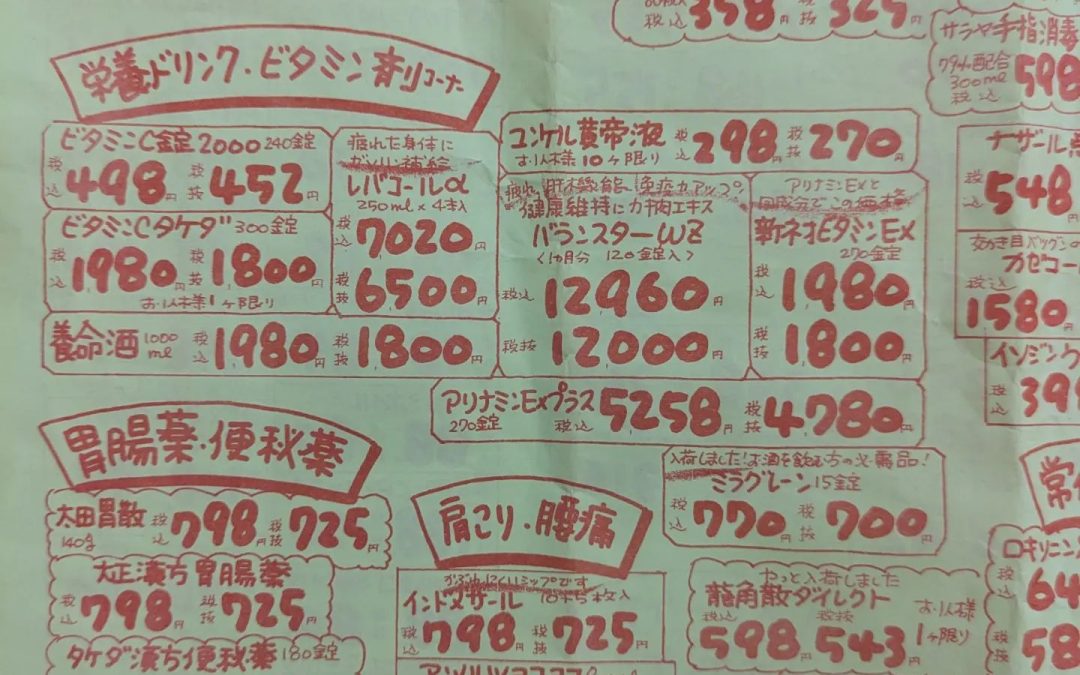 税込 358円 税抜 325円
サラヤ手指消毒
配合
300ml
税込 598
栄養ドリンク・ビタミン剤コーナー
ビタミンC錠2000 240錠
税込 498円 税抜 452円
ビタミンCタケダ 300錠
税込 1980円 税抜 1800円
お一人様1ヶ限り
養命酒 1000ml 税込 1980円 税抜 1800円
疲れた身体に
補給
レバコールα
250ml×4本入
税込 7020円
税抜 6500円
ユンケル黄帝液 税込 298円 税抜 270円
お一人様10ヶ限り
疲れ、肝機能、免疫力アップ
健康維持にカキ肉エキス
バランスターWZ
<1ヵ月分 120錠入>
税込 12960円
税抜 12000円
アリナミンEXと
同成分でこの価格
新ネオビタミンEX
270錠
税込 1980円
税抜 1800円
アリナミンEXプラス
270錠
税込 5258円 税抜 4780円
ナザール
税込 548
税込
1580円
イソジン
税込 39
胃腸薬・便秘薬
太田胃散
140g
税込 798円 税抜 725円
大正漢方胃腸薬
税込 798円 税抜 725円
タケダ漢方便秘薬 180錠
肩こり・腰痛
かぶれにくいシップです
インドメサール 10+5枚入
税込 798円 税抜 725円
入荷しました!お酒を飲む方の必需品!
ミラグレーン 15錠
税込 770円 税抜 700円
やっと入荷しました
龍角散ダイレクト
お一人様
1ヶ限り
税込 598円 税抜 543円
常
ロキソニン
税込 64
税抜 58